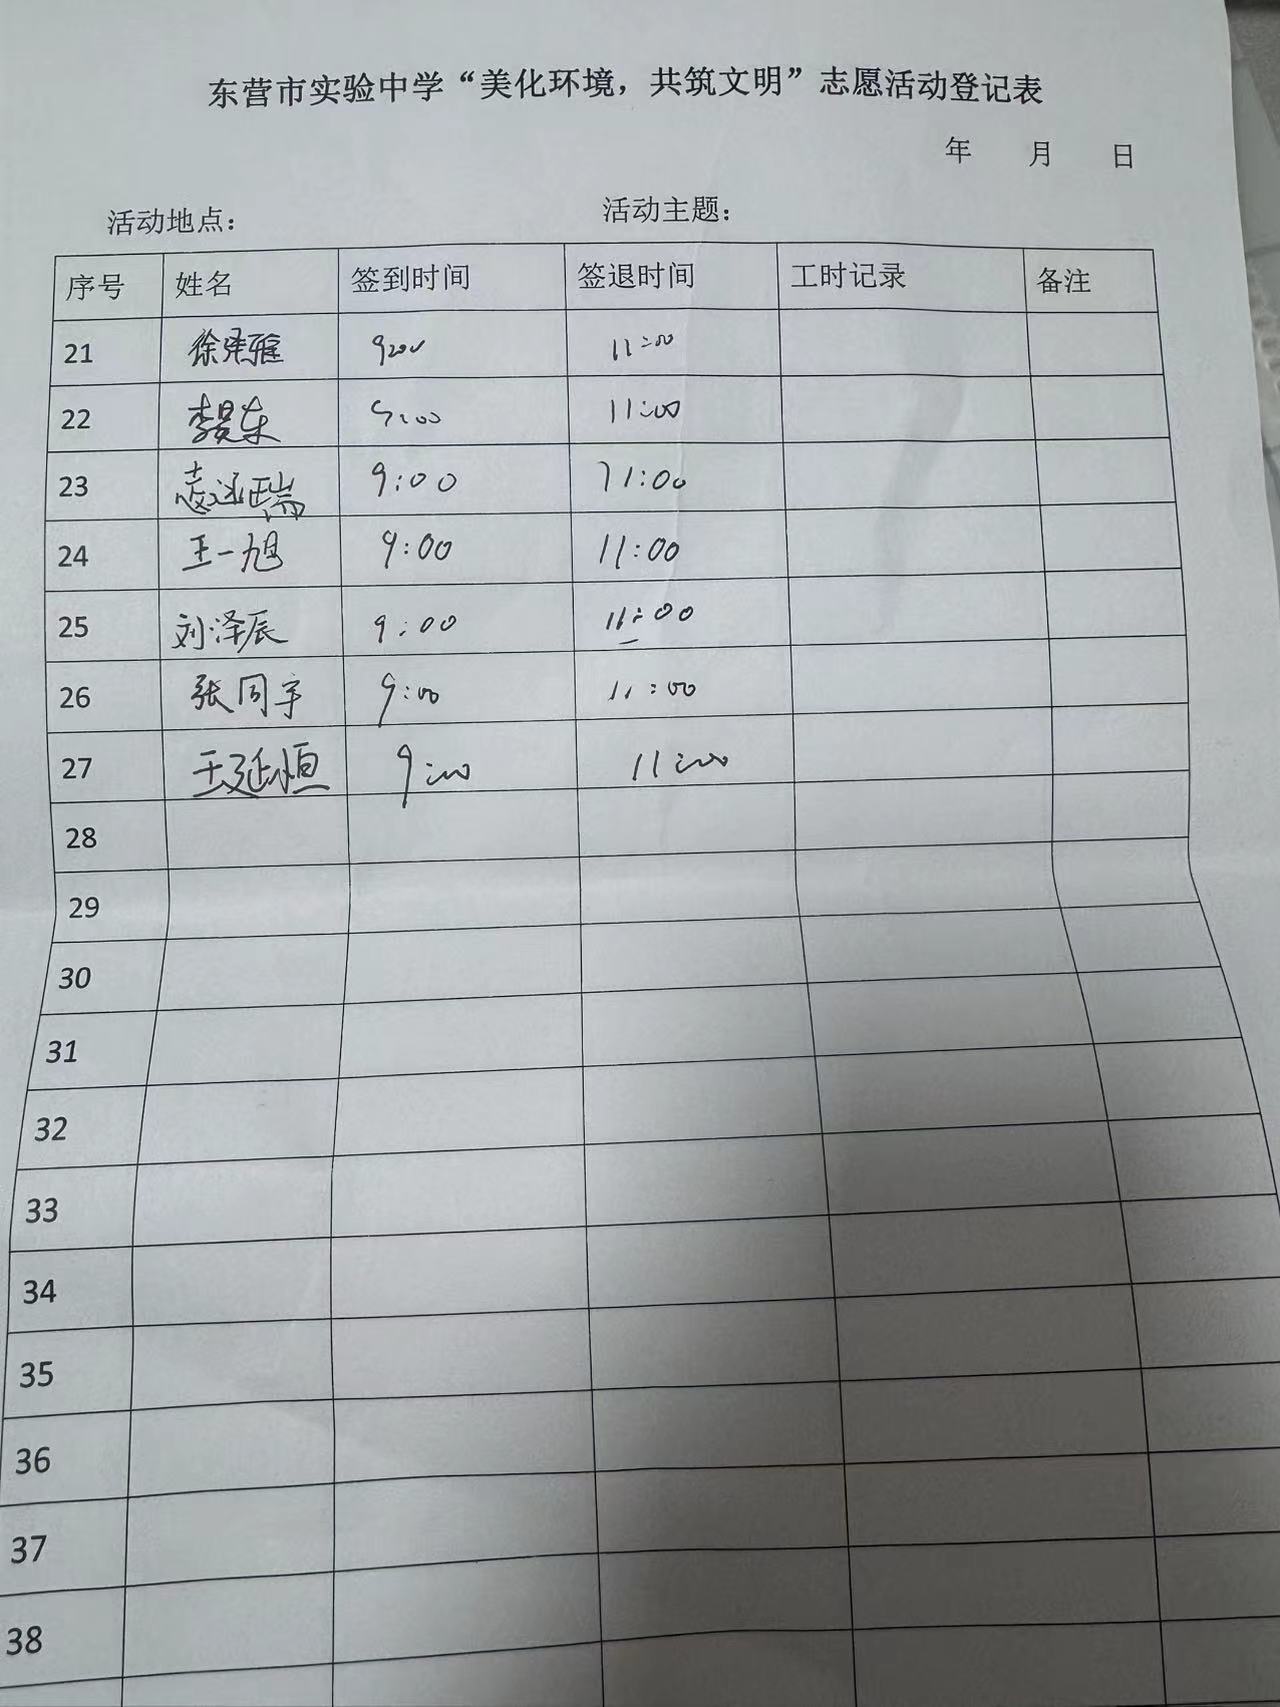 东营市实验中学“美化环境，共筑文明”志愿活动登记表
年 月 日
活动地点： 活动主题：
序号 姓名 签到时间 签退时间 工时记录 备注
21 徐 雅 9:00 11:00
22 李昊东 9:00 11:00
23 9:00 11:00
24 王一旭 9:00 11:00
25 刘泽辰 9:00 11:00
26 张同宇 9:00 11:00
27 王延恒 9:00 11:00
28
29
30
31
32
33
34
35
36
37
38